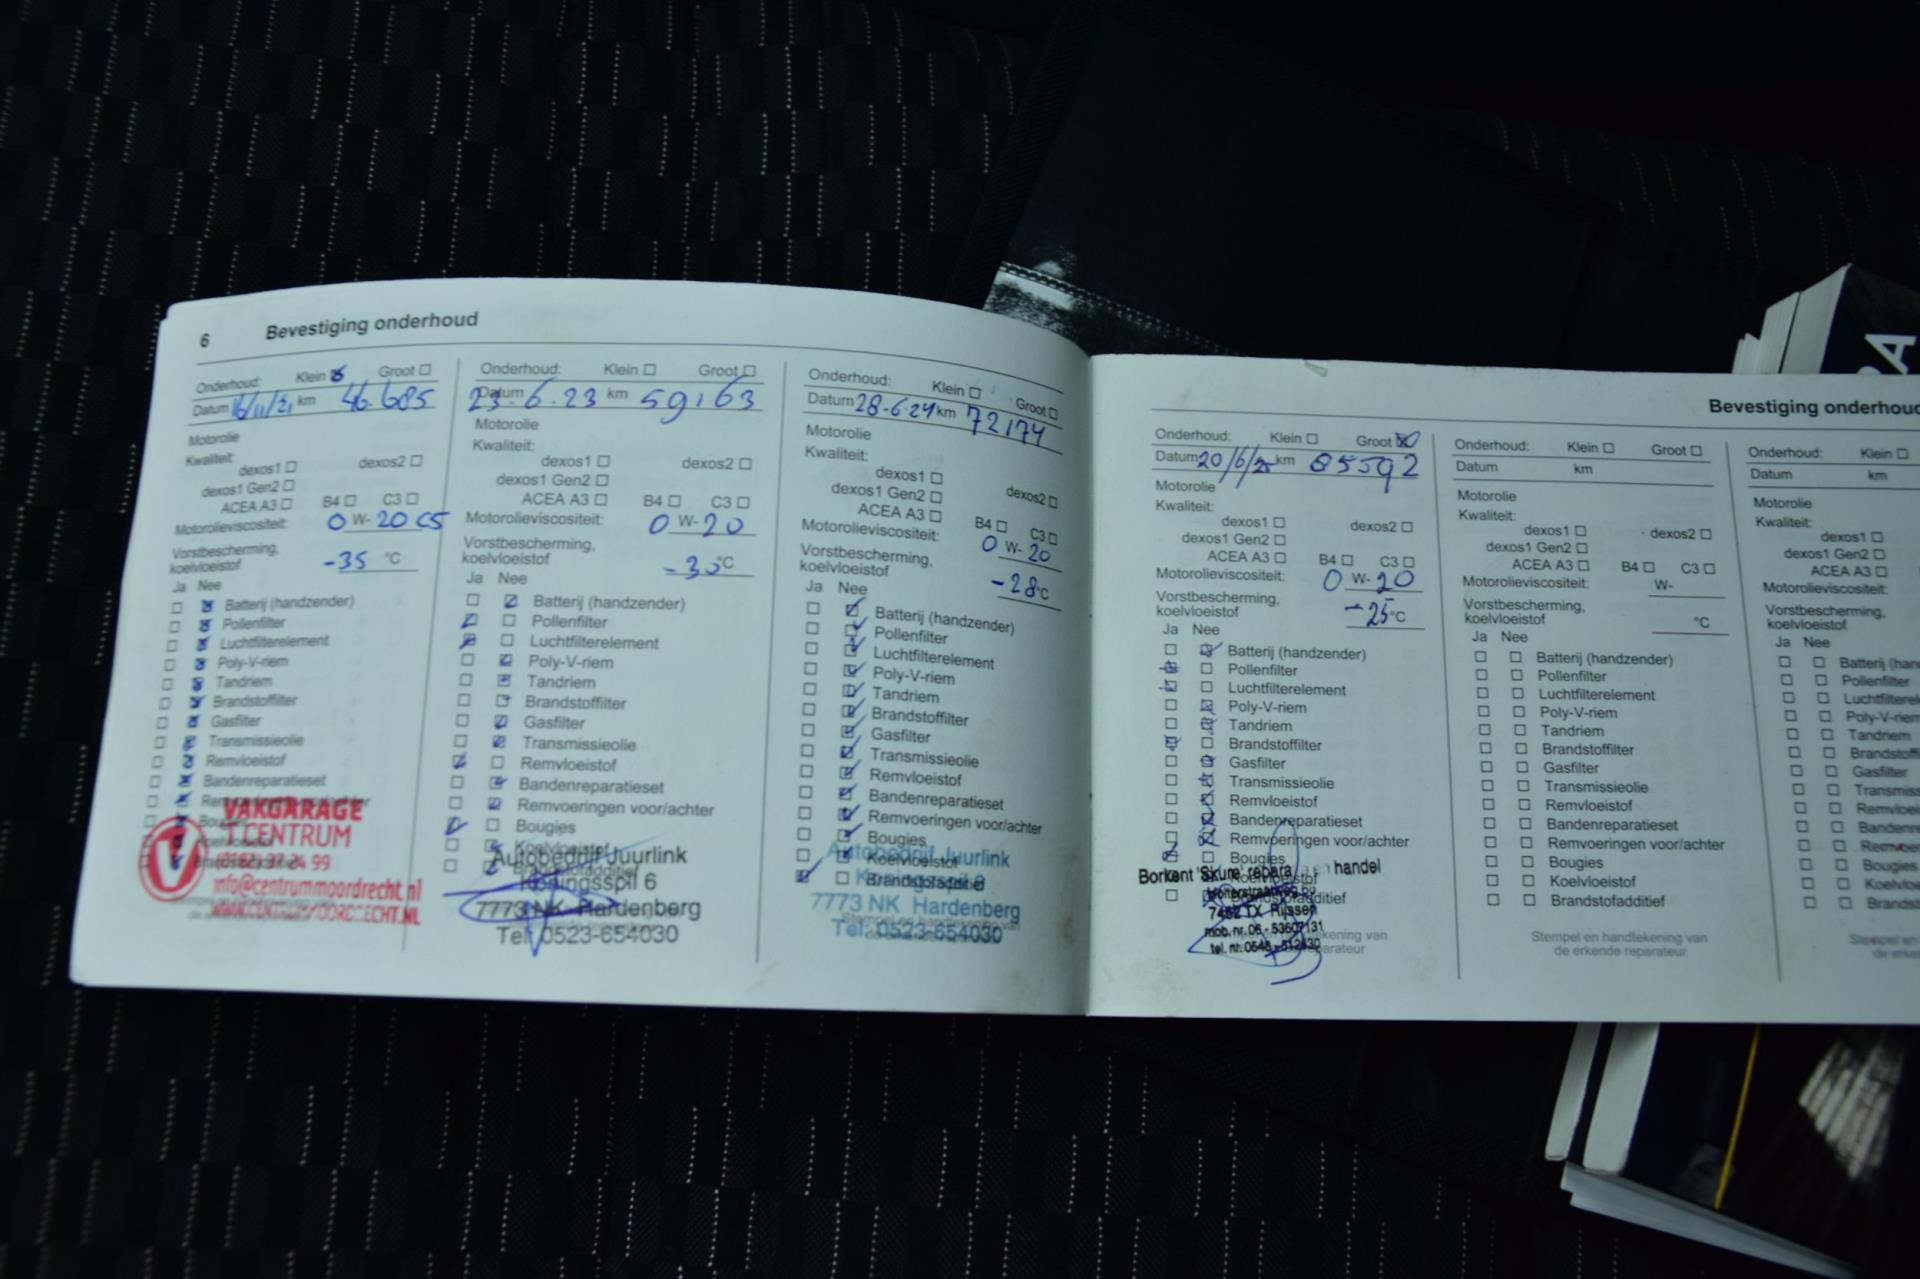 6 Bevestiging onderhoud
Onderhoud: Klein Groot
Datum 16/11/21 km 46.685
Motorolie
Kwaliteit:
dexos1 dexos2
dexos1 Gen2
ACEA A3 B4 C3
Motorolieviscositeit: 0 W- 20 C5
Vorstbescherming,
koelvloeistof -35 °C
Ja Nee
Batterij (handzender)
Pollenfilter
Luchtfilterelement
Poly-V-riem
Tandriem
Brandstoffilter
Gasfilter
Transmissieolie
Remvloeistof
Bandenreparatieset
VAKGARAGE
'T CENTRUM
info@centrummoordrecht.nl
WWW.CENTRUMMOORDRECHT.NL
Onderhoud: Klein Groot
Datum 23-6-23 km 59163
Motorolie
Kwaliteit:
dexos1 dexos2
dexos1 Gen2
ACEA A3 B4 C3
Motorolieviscositeit: 0 W- 20
Vorstbescherming,
koelvloeistof -30 °C
Ja Nee
Batterij (handzender)
Pollenfilter
Luchtfilterelement
Poly-V-riem
Tandriem
Brandstoffilter
Gasfilter
Transmissieolie
Remvloeistof
Bandenreparatieset
Remvoeringen voor/achter
Bougies
Koelvloeistof
Brandstofadditief
Autobedrijf Juurlink
Koningsspil 6
7773 NK Hardenberg
Tel. 0523-654030
Onderhoud: Klein Groot
Datum 28-6-24 km 72174
Motorolie
Kwaliteit:
dexos1 dexos2
dexos1 Gen2
ACEA A3 B4 C3
Motorolieviscositeit: 0 W- 20
Vorstbescherming,
koelvloeistof -28 °C
Ja Nee
Batterij (handzender)
Pollenfilter
Luchtfilterelement
Poly-V-riem
Tandriem
Brandstoffilter
Gasfilter
Transmissieolie
Remvloeistof
Bandenreparatieset
Remvoeringen voor/achter
Bougies
Koelvloeistof
Brandstofadditief
Autobedrijf Juurlink
Koningsspil 6
7773 NK Hardenberg
Tel. 0523-654030
Bevestiging onderhoud
Onderhoud: Klein Groot
Datum 20/6/25 km 85592
Motorolie
Kwaliteit:
dexos1 dexos2
dexos1 Gen2
ACEA A3 B4 C3
Motorolieviscositeit: 0 W- 20
Vorstbescherming,
koelvloeistof -25 °C
Ja Nee
Batterij (handzender)
Pollenfilter
Luchtfilterelement
Poly-V-riem
Tandriem
Brandstoffilter
Gasfilter
Transmissieolie
Remvloeistof
Bandenreparatieset
Remvoeringen voor/achter
Bougies
Koelvloeistof
Brandstofadditief
Borkent 'Skure' handel
7462 TX Rijssen
mob. nr. 06 - 53607131
tel. nr. 0548 - 512430
Onderhoud: Klein Groot
Datum km
Motorolie
Kwaliteit:
dexos1 dexos2
dexos1 Gen2
ACEA A3 B4 C3
Motorolieviscositeit: W-
Vorstbescherming,
koelvloeistof °C
Ja Nee
Batterij (handzender)
Pollenfilter
Luchtfilterelement
Poly-V-riem
Tandriem
Brandstoffilter
Gasfilter
Transmissieolie
Remvloeistof
Bandenreparatieset
Remvoeringen voor/achter
Bougies
Koelvloeistof
Brandstofadditief
Stempel en handtekening van
de erkende reparateur
Onderhoud: Klein
Datum km
Motorolie
Kwaliteit:
dexos1
dexos1 Gen2
ACEA A3
Motorolieviscositeit:
Vorstbescherming,
koelvloeistof
Ja Nee
Batterij (han
Pollenfilter
Luchtfiltere
Poly-V-riem
Tandriem
Brandstoffi
Gasfilter
Transmissie
Remvloeist
Bandenre
Remvoeri
Bougies
Koelvloei
Brandst
Stempel en
de erke